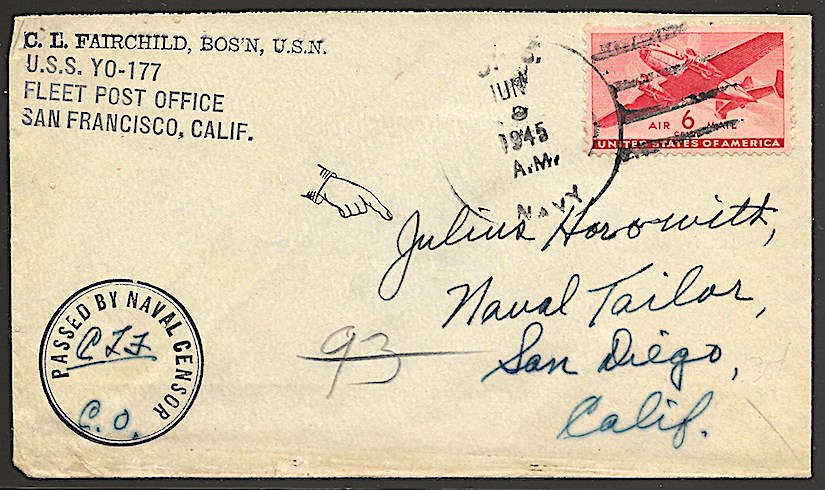 C. L. FAIRCHILD, BOS'N, U.S.N.
U.S.S. YO-177
FLEET POST OFFICE
SAN FRANCISCO, CALIF.
JUN
1945
A.M.
NAVY
AIR 6
UNITED STATES OF AMERICA
Julius Horowitt,
Naval Tailor,
San Diego,
Calif.
93
PASSED BY NAVAL CENSOR
C.O.